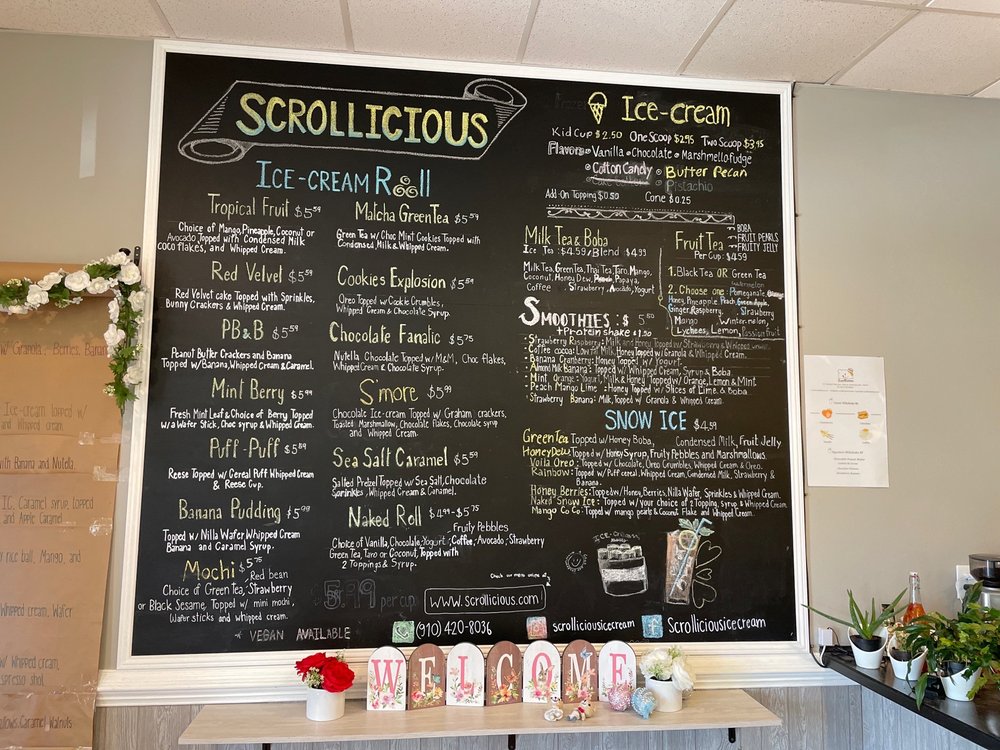 SCROLLICIOUS
ICE-CREAM Roll
Tropical Fruit $5.59
Choice of Mango, Pineapple, Coconut or
Avocado Topped with Condensed Milk
coco flakes, and Whipped Cream.
Red Velvet $5.59
Red Velvet cake Topped with Sprinkles,
Bunny Crackers & Whipped Cream.
PB&B $5.59
Peanut Butter Crackers and Banana
Topped w/Banana, Whipped Cream & Caramel.
Mint Berry $5.99
Fresh Mint Leaf & Choice of Berry Topped
w/a Wafer Stick, Choc syrup & Whipped cream.
Puff-Puff $5.59
Reese Topped w/ Cereal Puff Whipped Cream
& Reese Cup.
Banana Pudding $5.99
Topped w/ Nilla Wafer Whipped Cream
Banana and Caramel Syrup.
Mochi $5.75, Red bean
Choice of Green Tea, Strawberry
or Black Sesame, Topped w/ mini mochi,
Wafer sticks and whipped cream.
* VEGAN AVAILABLE
Matcha Green Tea $5.59
Green Tea w/ Choc Mint Cookies Topped with
Condensed Milk & Whipped Cream.
Cookies Explosion $5.59
Oreo Topped w/ Cookie Crumbles,
Whipped Cream & Chocolate Syrup.
Chocolate Fanatic $5.75
Nutella Chocolate Topped w/ M&M, Choc Flakes,
Whipped Cream & Chocolate Syrup.
S'more $5.99
Chocolate Ice-cream Topped w/ Graham crackers,
Toasted Marshmallow, Chocolate Flakes, Chocolate syrup
and Whipped Cream.
Sea Salt Caramel $5.59
Salted Pretzel Topped w/ Sea Salt, Chocolate
Sprinkles, Whipped Cream & Caramel.
Naked Roll $4.99-$5.75
Fruity Pebbles
Choice of Vanilla, Chocolate, Yogurt, Coffee, Avocado, Strawberry
Green Tea, Taro or Coconut, Topped with
2 Toppings & Syrup.
$5.99 per cup
Check our menu online at
www.scrollicious.com
(910) 420-8036
scrolliciousicecream
Scrolliciousicecream
Ice-cream
Kid Cup $2.50 One Scoop $2.95 Two Scoop $3.95
Flavors Vanilla Chocolate Marshmellofudge
Cotton Candy Butter Pecan
Pistachio
Add-On Topping $0.50 Cone $0.25
Milk Tea & Boba
Ice Tea : $4.59/Blend : $4.99
Milk Tea, Green Tea, Thai Tea, Taro, Mango,
Coconut, Honey Dew, Papaya,
Coffee, Strawberry, Avocado, Yogurt
Fruit Tea
BOBA
FRUIT PEARLS
FRUITY JELLY
Per Cup: $4.59
1. Black Tea OR Green Tea
watermelon
2. Choose one: Pomegranate
Honey, Pineapple, Peach, Green Apple,
Ginger, Raspberry, Strawberry
Mango Winter-melon,
Lychees, Lemon, Passion fruit
SMOOTHIES : $ 5.50
+ Protein shake + 1.50
Strawberry Raspberry: Milk and Honey Topped w/ Strawberry & Whipped cream.
Coffee cocoa: Low fat Milk, Honey Topped w/ Granola & Whipped Cream.
Banana Cranberry: Honey Topped w/ Yogurt.
Almond Milk Banana: Topped w/ Whipped Cream, Syrup & Boba
Mint Orange: Yogurt, Milk & Honey Topped w/ Orange, Lemon & Mint
Peach Mango Lime: Honey Topped w/ Slices of Lime & Boba
Strawberry Banana: Milk, Topped w/ Granola & Whipped Cream.
SNOW ICE $4.59
Green Tea Topped w/ Honey Boba, Condensed Milk, Fruit Jelly
Honey Dew: Topped w/ Honey Syrup, Fruity Pebbles and Marshmallows.
Voila Oreo: Topped w/ Chocolate, Oreo Crumbles, Whipped Cream & Oreo.
Rainbow: Topped w/ Puff cereal, Whipped Cream, Condensed Milk, Strawberry &
Banana
Honey Berries: Topped w/ Honey, Berries, Nilla Wafer, Sprinkles & Whipped Cream.
Naked Snow Ice: Topped w/ your choice of 2 Topping, Syrup & Whipped Cream
Mango Co Co: Topped w/ mango pearls & Coconut Flake and Whipped Cream.
ICE-CREAM
WELCOME
w/ Granola, Berries, Banana
Ice-cream topped w/
and Whipped cream.
with Banana and Nutella.
IC, Caramel syrup, topped
and Apple Caramel
rice ball, Mango, and
Whipped cream, Wafer
w/ Whipped cream,
espresso shot.
Caramel Walnuts